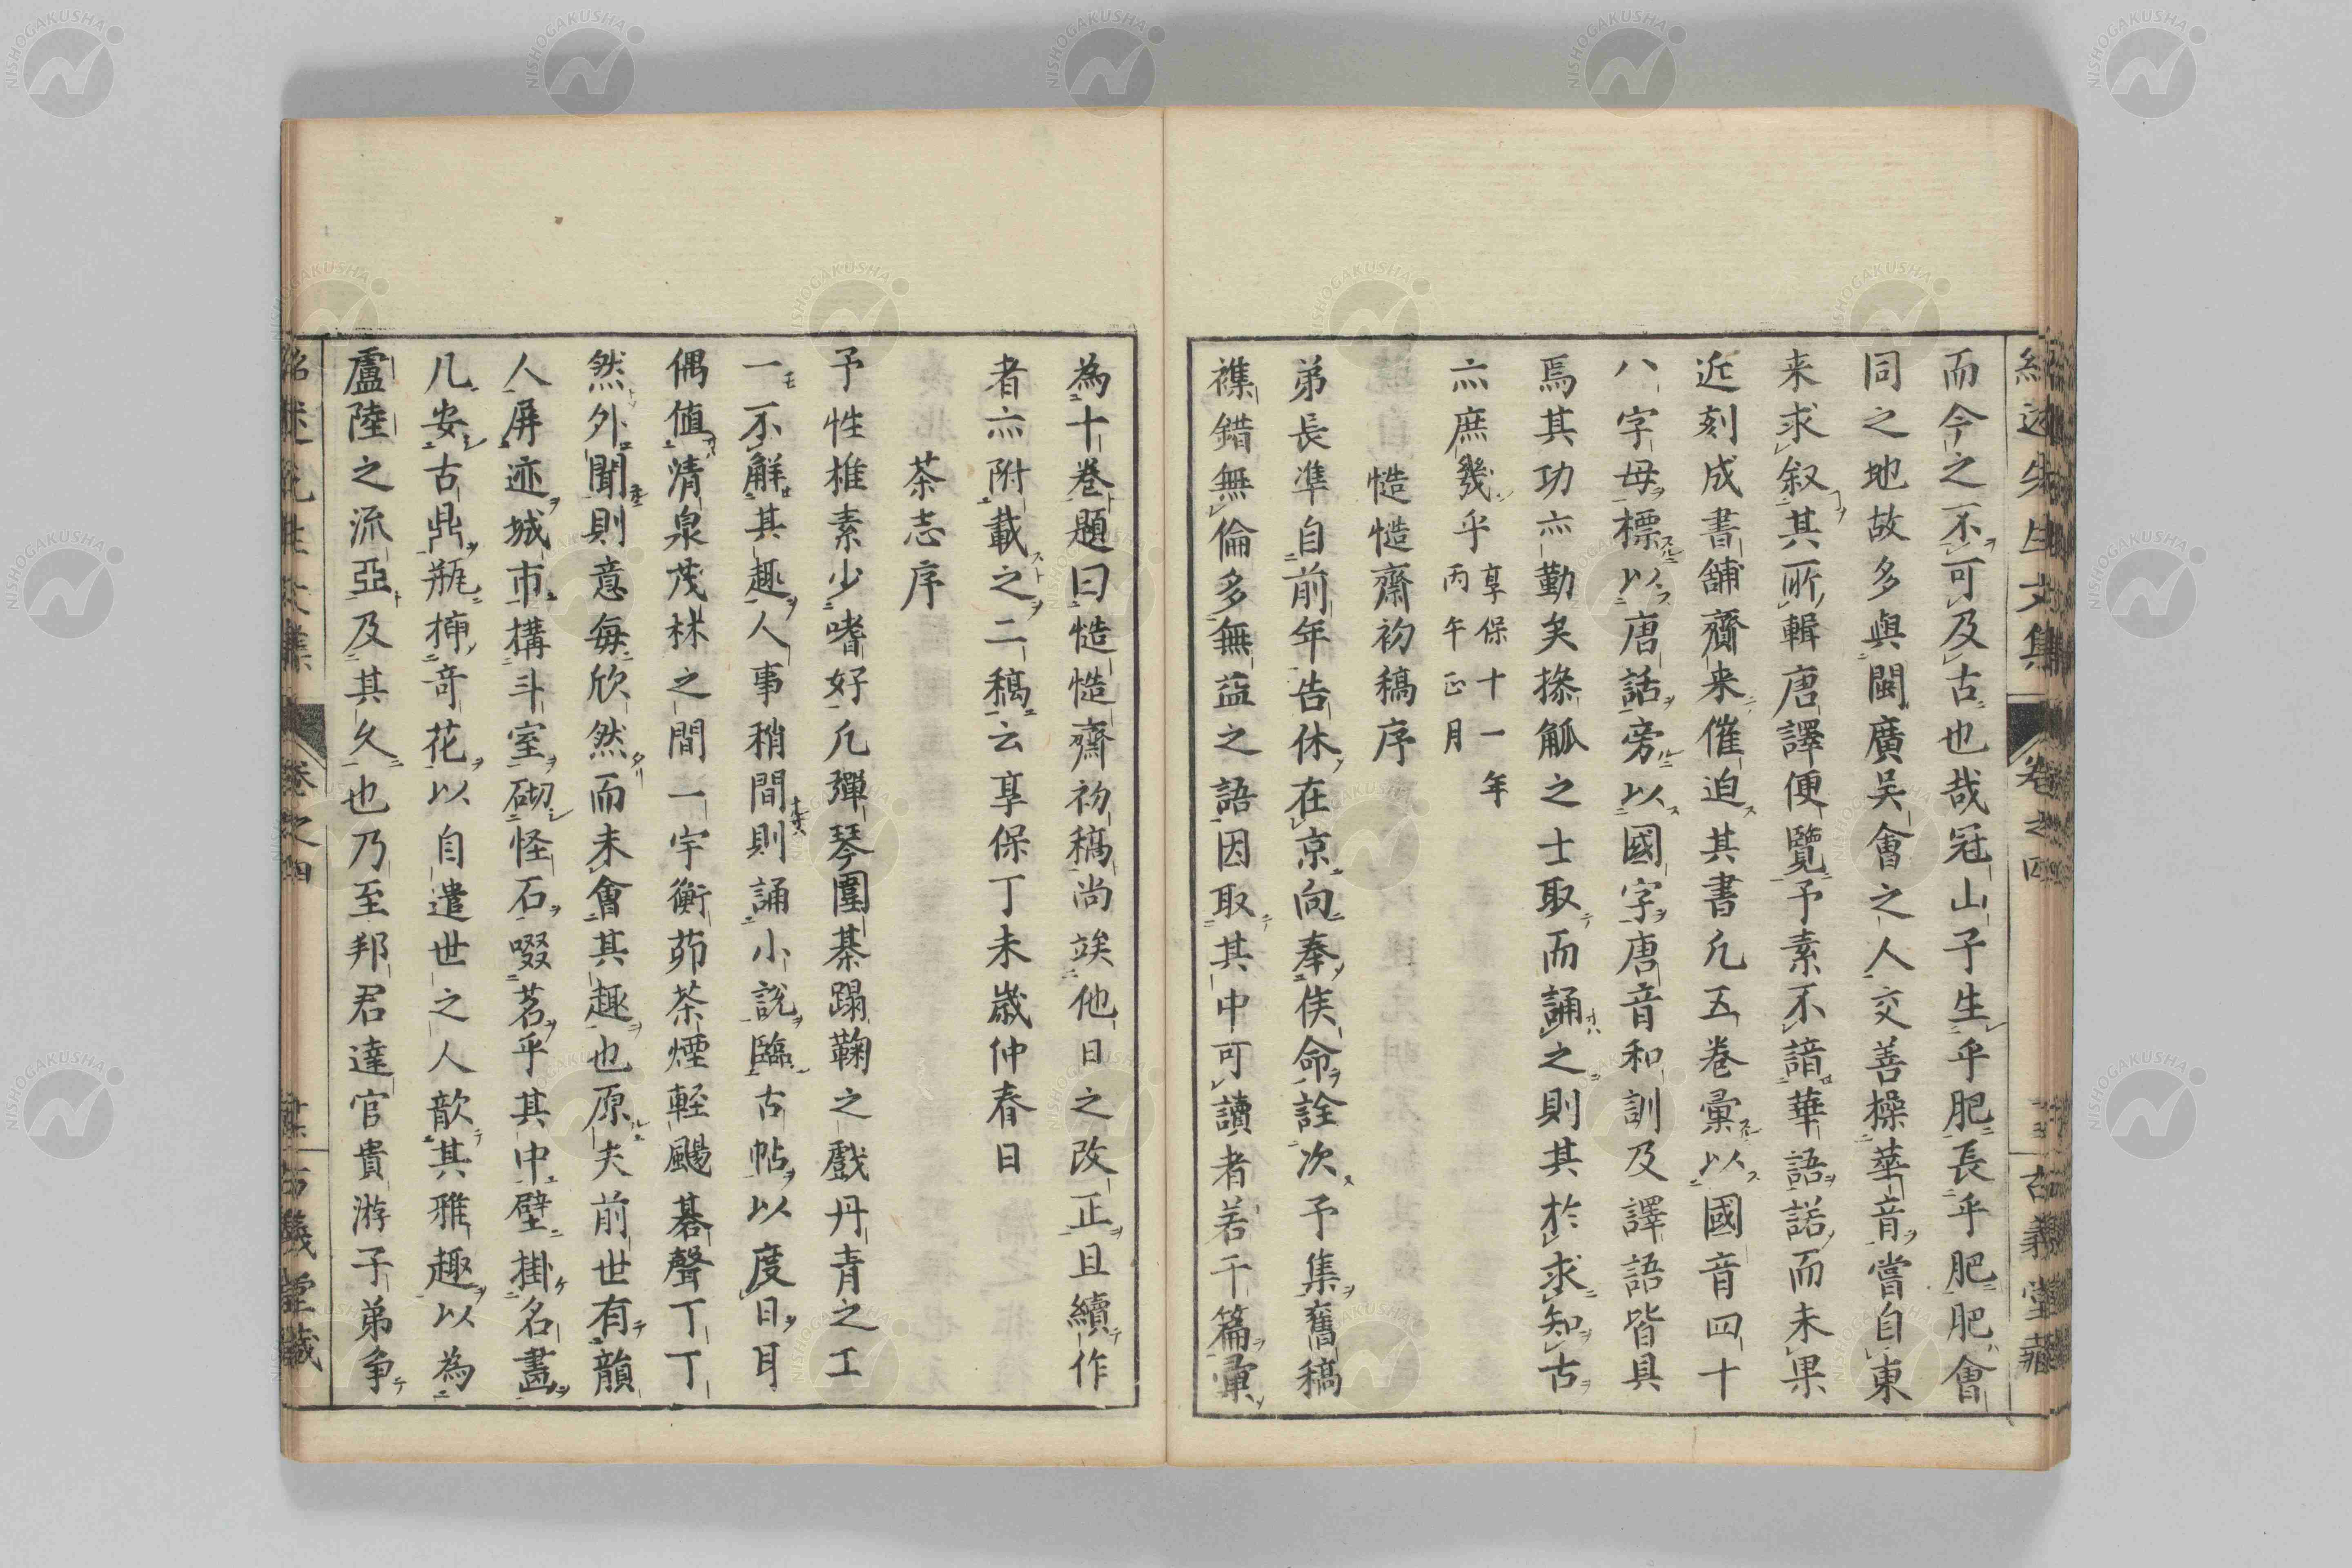 而今之不可及古也哉冠山子生乎肥長乎肥肥會
同之地故多與閩廣吳會之人交善操華音嘗自東
来求叙其所輯唐譯便覽予素不諳華語諾而未果
近刻成書舗齎来催迫其書凡五巻彙以國音四十
八字母標以唐話旁以國字唐音和訓及譯語皆具
焉其功亦勤矣掾觚之士取而誦之則其於求知古
亦庶幾乎享保十一年
丙午正月
慥慥齋初稿序
弟長凖自前年告休在京向奉侯命詮次予集舊稿
襍錯無倫多無益之語因取其中可讀者若干篇彙
為十巻題曰慥慥齋初稿尚竢他日之改正且續作
者亦附載之二稿云享保丁未歲仲春日
茶志序
予性椎素少嗜好凡彈琴圍棊蹋鞠之戲丹青之工
一不解其趣人事稍間則誦小說臨古帖以度日耳
偶值清泉茂林之間一宇衡茆茶煙軽颺碁聲丁丁
然外聞則意每欣然而未會其趣也原夫前世有韻
人屏迹城市構斗室砌怪石啜茗乎其中壁掛名畫
几安古鼎瓶揷竒花以自遣世之人歆其雅趣以為
盧陸之流亞及其久也乃至邦君達官貴游子弟争
紹述先生文集
巻之四
古義堂蔵
NISHOGAKUSHA